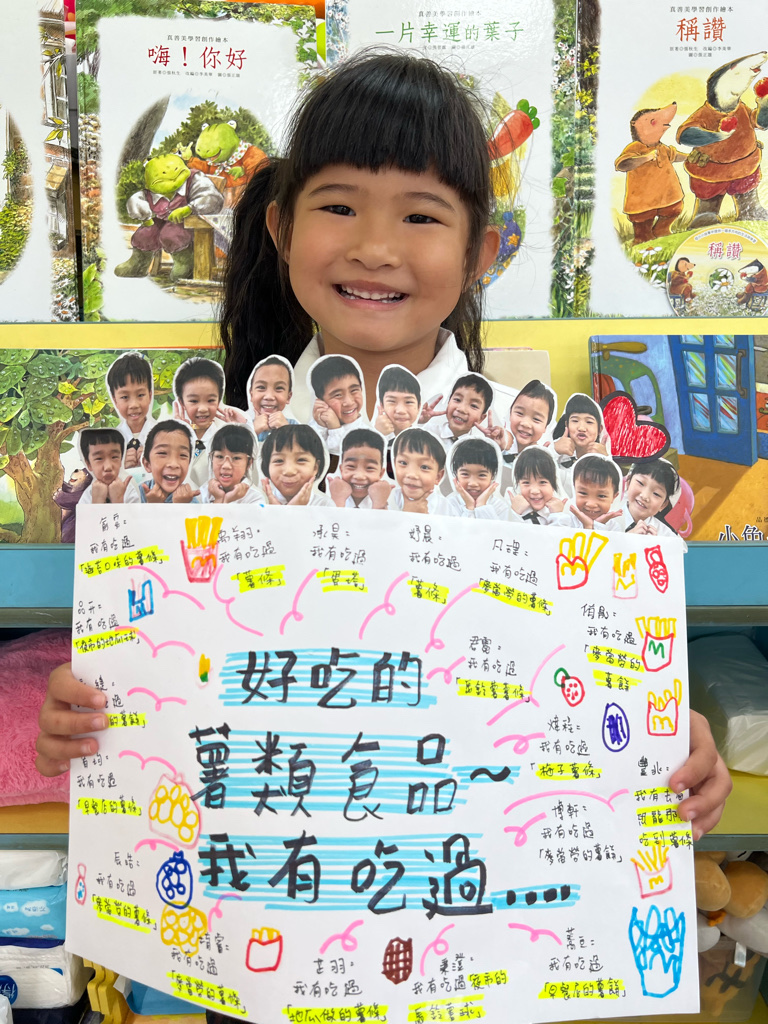 真善美學習創作繪本
嗨！你好
真善美學習創作繪本
一片幸運的葉子
真善美學習創作繪本
稱讚
稱讚
小魚
我有吃過
「海苔口味的薯條」
我有吃過
「薯條」
承昊：
我有吃過
「蛋塔」
妤晨：
我有吃過
「薯條」
我有吃過
「麥當勞的薯條」
品升：
我有吃過
「夜市的地瓜球」
我有吃過
「麥當勞的
薯餅」
君霈：
我有吃過
「馬鈴薯薯條」
好吃的
薯類食品～
我有吃過....
過
的薯餅」
我有吃過
「梅子薯條」
我有吃過
「早餐店的薯條」
博軒：
我有吃過
「麥當勞的薯餅」
我有去
吃到薯條
辰皓：
我有吃過
「麥當勞的薯條」
我有吃過
「麥當勞的薯條」
芷羽：
我有吃過
「地瓜做的薯條」
我有吃過夜市的
馬鈴薯球」
我有吃過
「早餐店的薯餅」